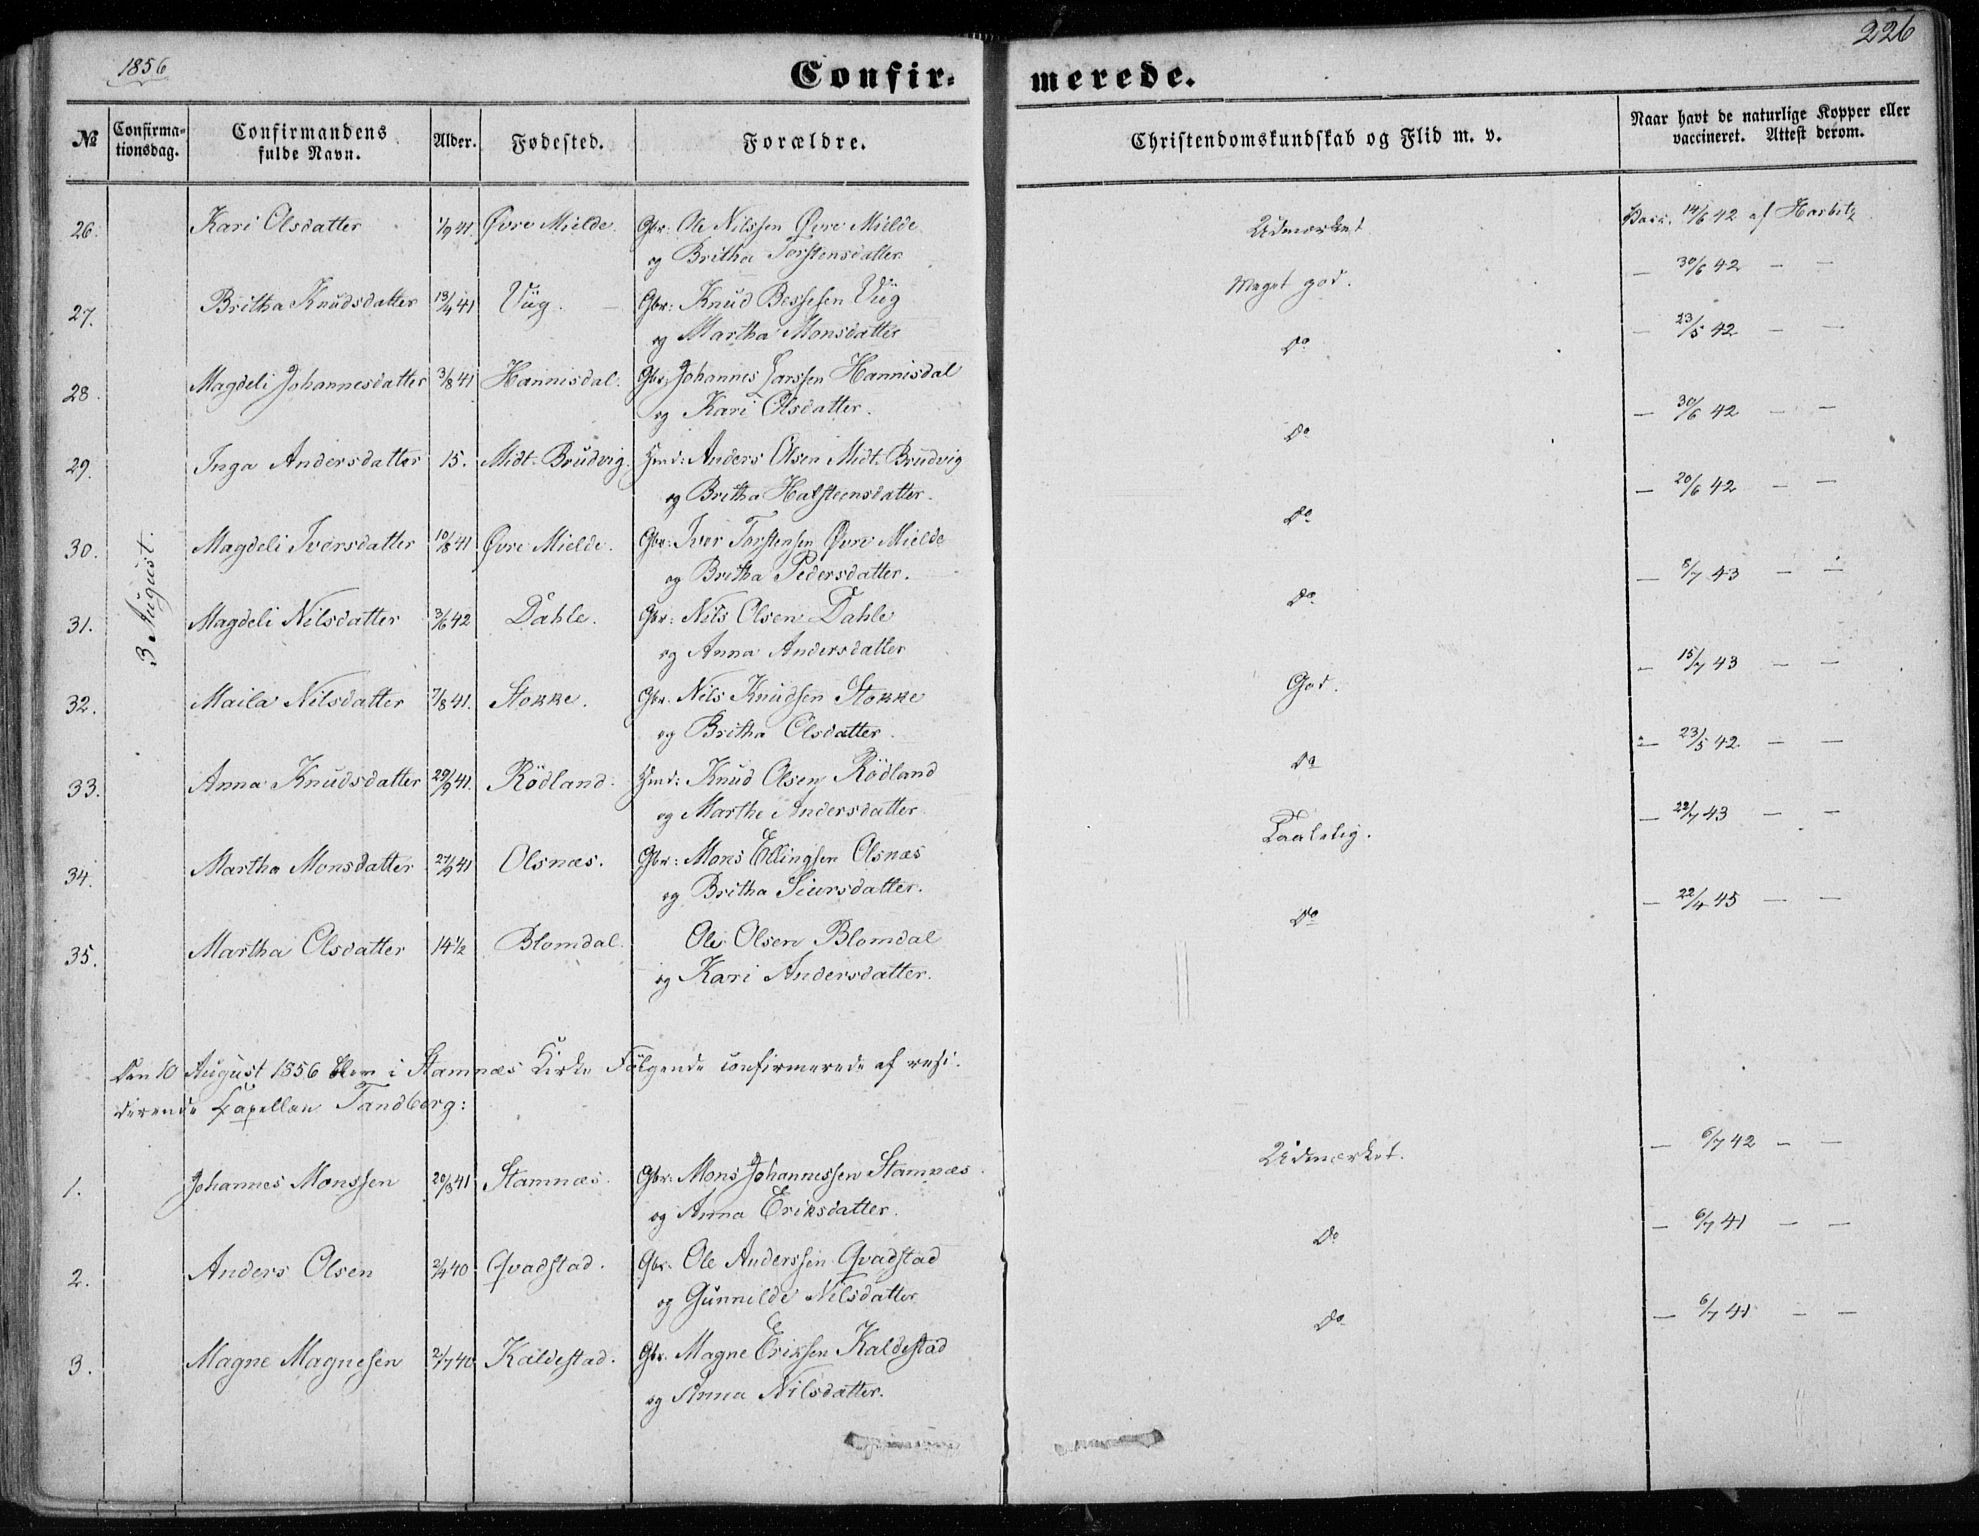 1856
226
Confir- merede.
№ Confirma-tionsdag. Confirmandens fulde Navn. Alder. Fødested. Forældre. Christendomskundskab og Flid m. v. Naar havt de naturlige Kopper eller vaccineret. Attest derom.
3 August.
26. Kari Olsdatter 1/9 41. Øvre Mielde. Gbr: Ole Nilssen Øvre Mielde Udmærket Vacc. 14/6 42 af Harbitz
og Britha Torstensdatter
27. Britha Knudsdatter 13/4 41 Viig. — Gbr: Knud Bessesen Viig Meget god. — 30/6 42 — —
og Martha Monsdatter
28. Magdeli Johannesdatter 3/8 41 Hannisdal. Gbr: Johannes Larssen Hannisdal Do — 23/5 42 — —
og Kari Olsdatter.
29. Inga Andersdatter 15. Midt. Brudvig. Hmd: Anders Olsen Midt. Brudvig Do — 30/6 42 — —
og Britha Halsteensdatter.
30. Magdeli Iversdatter 10/8 41 Øvre Mielde. Gbr: Iver Torstensen Øvre Mielde Do — 20/6 42 — —
og Britha Pedersdatter.
31. Magdeli Nilsdatter 3/6 42 Dahle. Gbr: Nils Olsen Dahle Do — 8/7 43 — —
og Anna Andersdatter
32. Maila Nilsdatter 7/8 41. Stokke. Gbr. Nils Knudsen Stokke God. — 15/7 43 — —
og Britha Olsdatter.
33. Anna Knudsdatter 29/9 41. Rödland. Hmd: Knud Olsen Rödland Do — 23/5 42 — —
og Marthe Andersdatter
34. Martha Monsdatter 27/9 41 Olsnæs. Gbr: Mons Ellingsen Olsnæs Taalelig. — 22/7 43 — —
og Britha Siursdatter.
35. Martha Olsdatter 14½ Blomdal. Ole Olsen Blomdal Do — 22/4 45 — —
og Kari Andersdatter.
Den 10 August 1856 blev i Stamnæs Kirke Følgende confirmerede af resi-
derende Capellan Tandberg:
1. Johannes Monssen 20/8 41 Stamnæs. Gbr: Mons Johannessen Stamnæs. Udmærket. — 6/7 42 — —
og Anna Eriksdatter.
2. Anders Olsen 2/4 40 Qvadstad. Gbr. Ole Anderssen Qvadstad Do — 6/7 41 — —
og Gunnilde Nilsdatter
3. Magne Magnesen 2/7 40 Kaldestad. Gbr. Magne Eriksen Kaldestad Do — 6/7 41 — —
og Anna Nilsdatter.